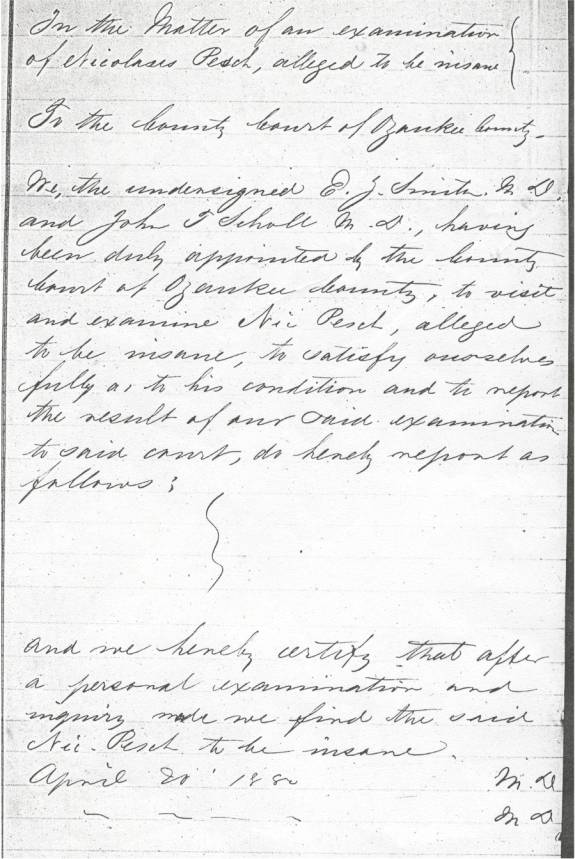 In the Matter of an examination
of Nicolaus Pesch, alleged to be insane
To the County Court of Ozaukee County.
We, the undersigned E. J. Smith M D.
and John T Scholl M. D., having
been duly appointed by the County
Court of Ozaukee County, to visit
and examine Nic Pesch, alleged
to be insane, to satisfy ourselves
fully as to his condition and to report
the result of our said examination
to said court, do hereby report as
follows;
and we hereby certify that after
a personal examination and
inquiry made we find the said
Nic. Pesch to be insane.
April 20' 1880
M. D.
M D.